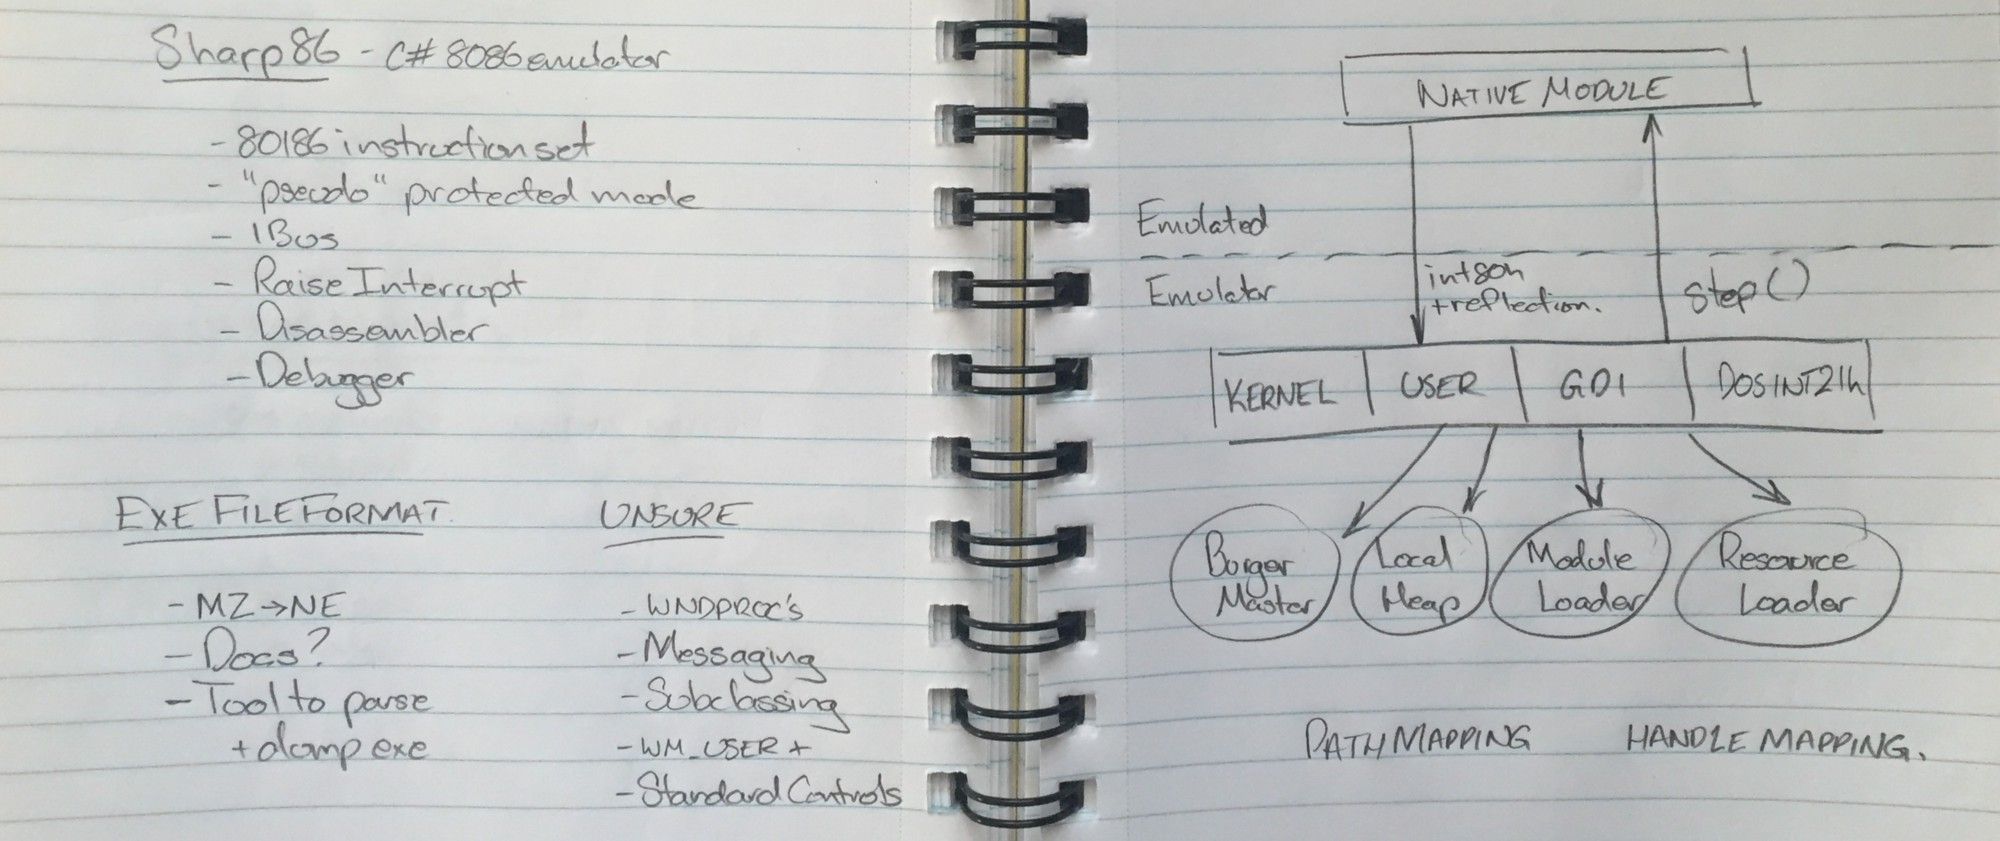 Sharp86 - C# 8086 emulator
- 80186 instruction set
- "pseudo" protected mode
- IBus
- Raise Interrupt
- Disassembler
- Debugger
EXE FILE FORMAT
- MZ→NE
- Docs?
- Tool to parse
+ dump exe
UNSURE
- WNDPROC's
- Messaging
- Subclassing
- WM_USER +
- Standard Controls
NATIVE MODULE
Emulated
Emulator
int 80h
+ reflection.
step()
KERNEL USER GDI DOS INT 21h
Burger
Master
Local
Heap
Module
Loader
Resource
Loader
PATH MAPPING HANDLE MAPPING.